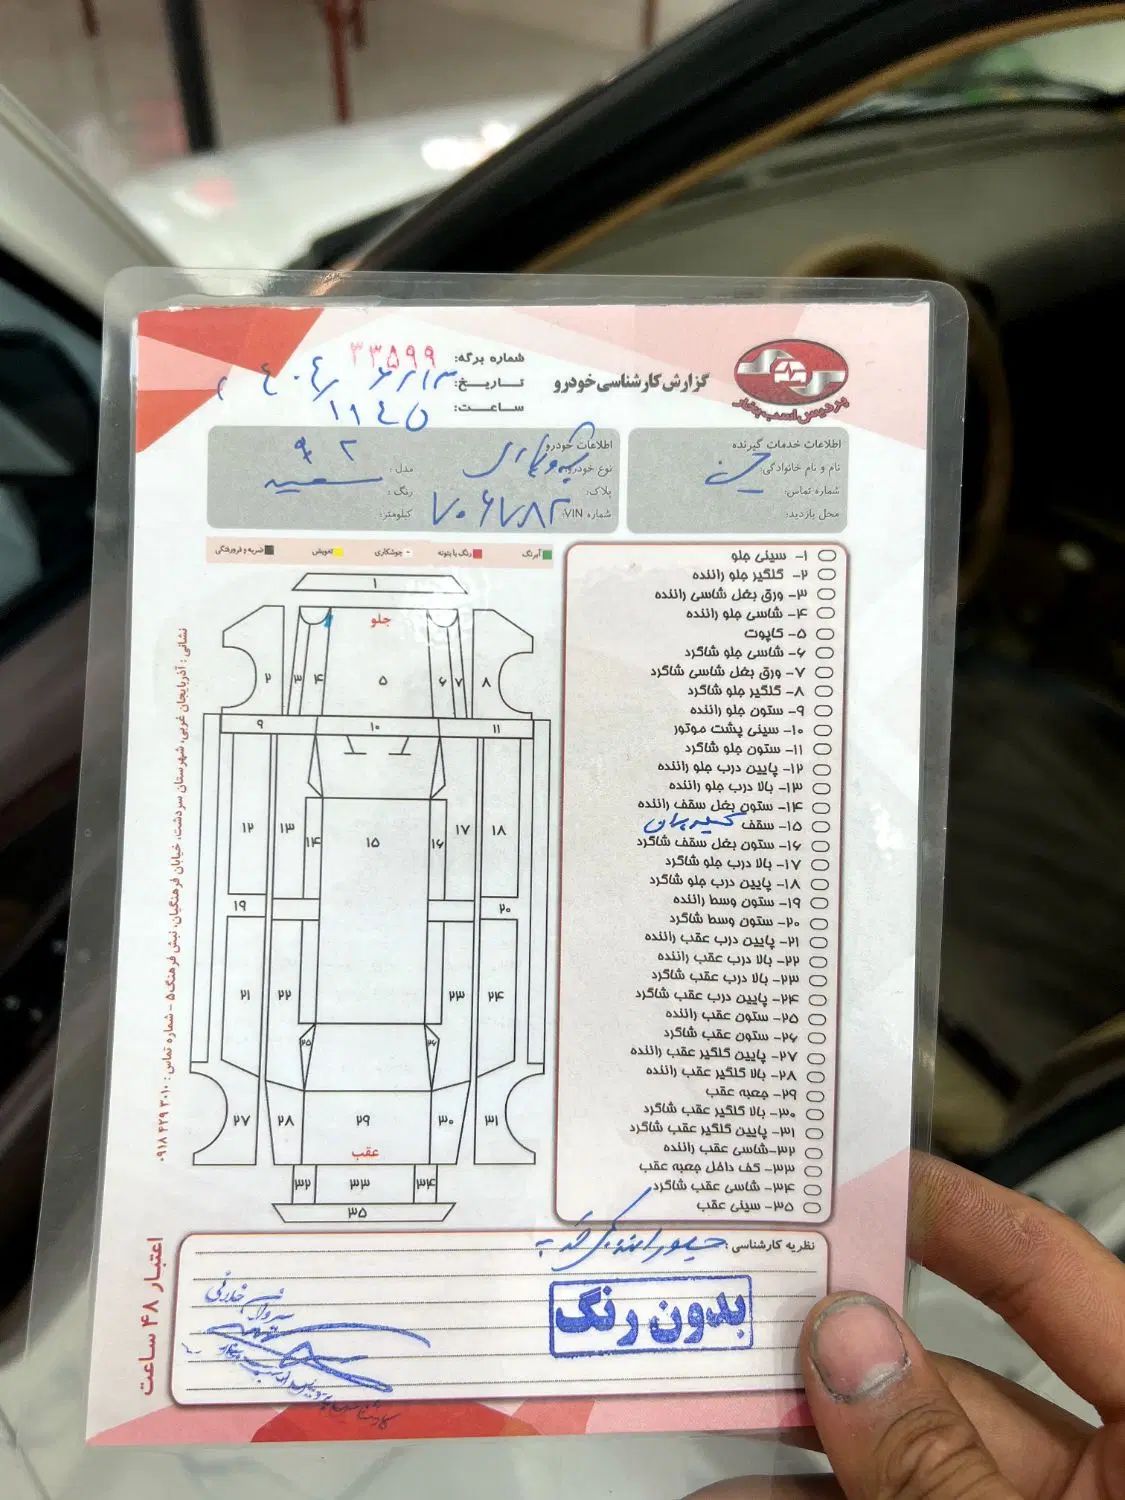 پردیس اسب بخار
گزارش کارشناسی خودرو
شماره برگه: ۳۳۵۹۹
تاریخ: ۱۴۰۴/۶/۱۳
ساعت: ۱۱:۴۵
اطلاعات خدمات گیرنده
نام و نام خانوادگی:
شماره تماس:
محل بازدید:
اطلاعات خودرو
نوع خودرو:
مدل: ۹۲
پلاک:
رنگ: سفید
شماره VIN: ۷۰۶۷۸۲
کیلومتر:
آبرنگ
رنگ با بتونه
جوشکاری
تعویض
ضربه و فرورفتگی
۱- سینی جلو
۲- گلگیر جلو راننده
۳- ورق بغل شاسی راننده
۴- شاسی جلو راننده
۵- کاپوت
۶- شاسی جلو شاگرد
۷- ورق بغل شاسی شاگرد
۸- گلگیر جلو شاگرد
۹- ستون جلو راننده
۱۰- سینی پشت موتور
۱۱- ستون جلو شاگرد
۱۲- پایین درب جلو راننده
۱۳- بالا درب جلو راننده
۱۴- ستون بغل سقف راننده
۱۵- سقف
۱۶- ستون بغل سقف شاگرد
۱۷- بالا درب جلو شاگرد
۱۸- پایین درب جلو شاگرد
۱۹- ستون وسط راننده
۲۰- ستون وسط شاگرد
۲۱- پایین درب عقب راننده
۲۲- بالا درب عقب راننده
۲۳- بالا درب عقب شاگرد
۲۴- پایین درب عقب شاگرد
۲۵- ستون عقب راننده
۲۶- ستون عقب شاگرد
۲۷- پایین گلگیر عقب راننده
۲۸- بالا گلگیر عقب راننده
۲۹- جعبه عقب
۳۰- بالا گلگیر عقب شاگرد
۳۱- پایین گلگیر عقب شاگرد
۳۲- شاسی عقب راننده
۳۳- کف داخل جعبه عقب
۳۴- شاسی عقب شاگرد
۳۵- سینی عقب
۱
جلو
۲
۳
۴
۵
۶
۷
۸
۹
۱۰
۱۱
۱۲
۱۳
۱۴
۱۵
۱۶
۱۷
۱۸
۱۹
۲۰
۲۱
۲۲
۲۳
۲۴
۲۵
۲۶
۲۷
۲۸
۲۹
۳۰
۳۱
عقب
۳۲
۳۳
۳۴
۳۵
نشانی: آذربایجان غربی، شهرستان سردشت، خیابان فرهنگیان، نبش فرهنگ ۵ - شماره تماس: ۰۹۱۸ ۴۲۹ ۳۰۱۰
نظریه کارشناسی:
بدون رنگ
اعتبار ۴۸ ساعت